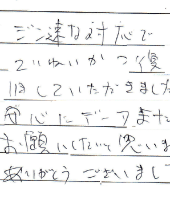 ジン速な対応で
ていねいかつ優
しくしていただきました
安心にデータまた
お願いしたいと思いま
ありがとうございまし